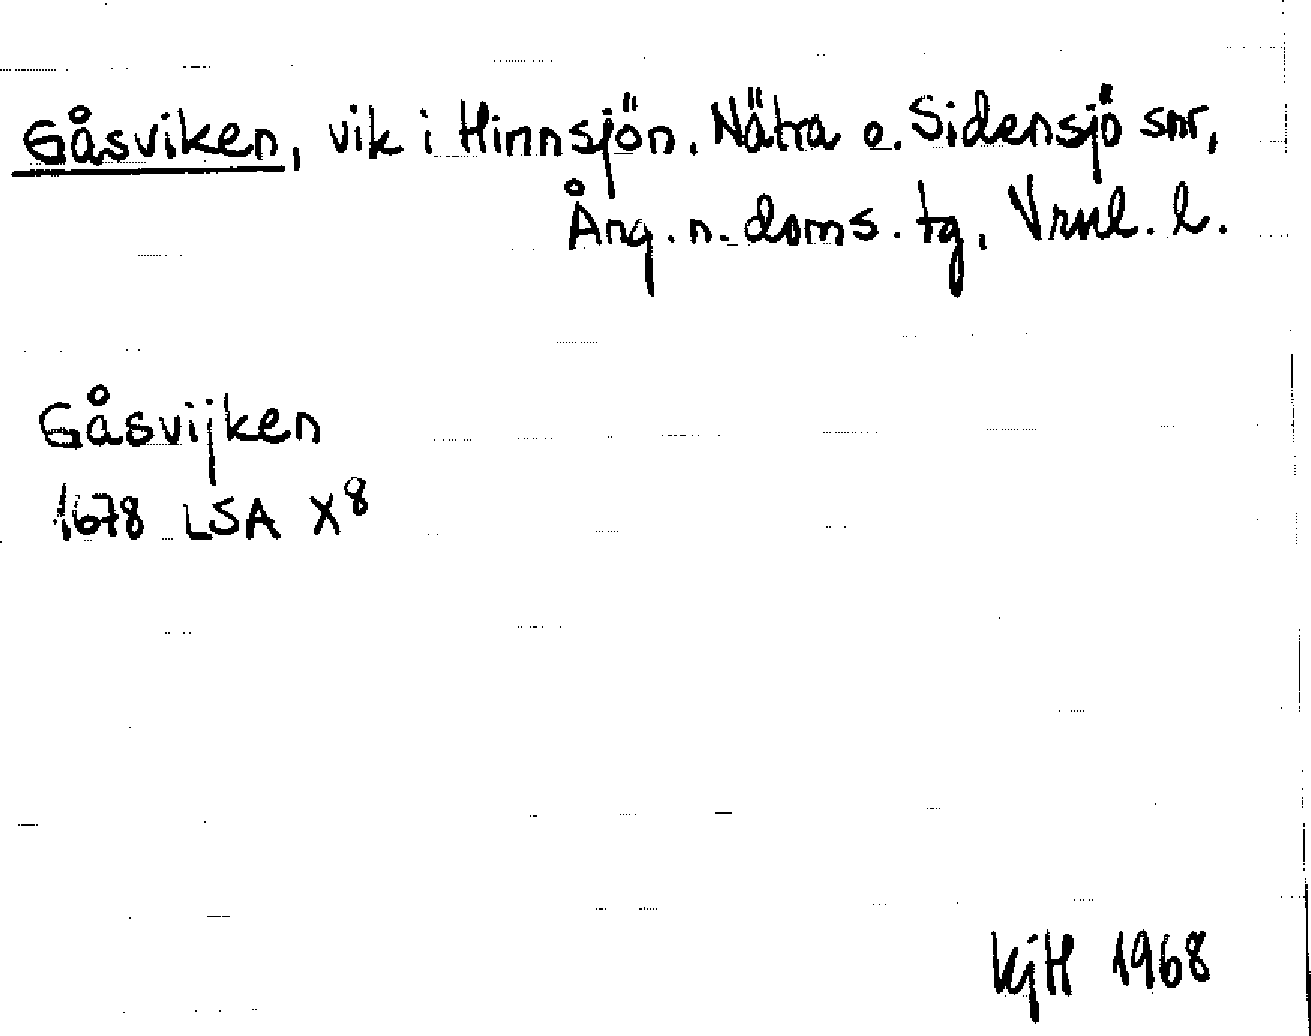 Gåsviken, vik i Hinnsjön. Nätra o. Sidensjö snr,
Ång. n. doms. tg, Vrnl. l.
Gåsvijken
1678 LSA X8
KjH 1968